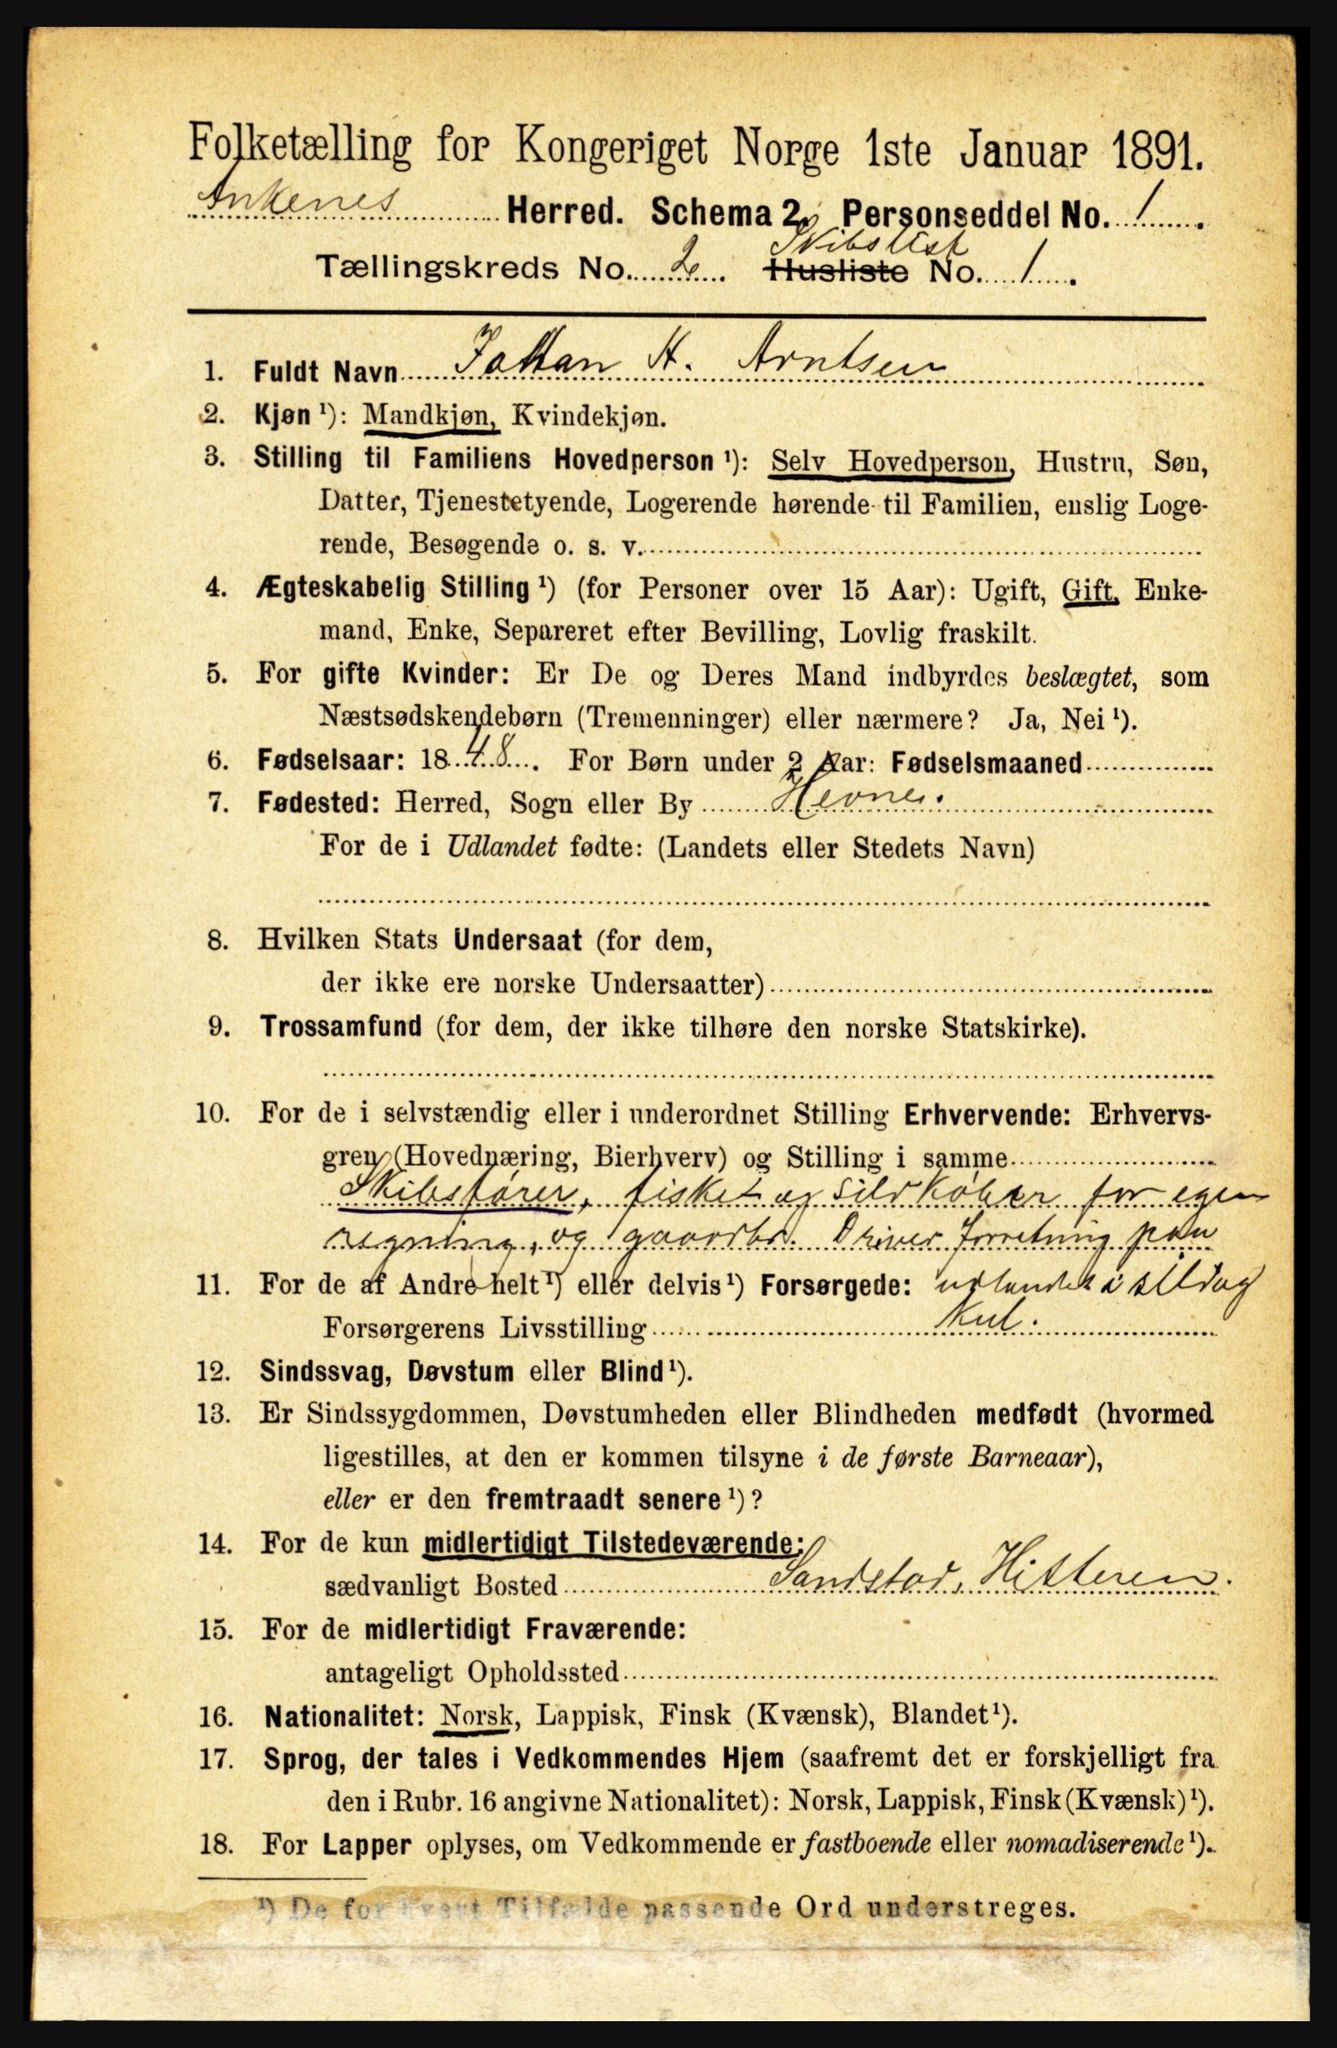 Folketælling for Kongeriget Norge 1ste Januar 1891.
Ankenes Herred. Schema 2. Personseddel No. 1.
Skibslist
Tællingskreds No. 2. Husliste No. 1.
1. Fuldt Navn Johan H. Arntsen
2. Kjøn ¹): Mandkjøn, Kvindekjøn.
3. Stilling til Familiens Hovedperson ¹): Selv Hovedperson, Hustru, Søn,
Datter, Tjenestetyende, Logerende hørende til Familien, enslig Loge-
rende, Besøgende o. s. v.
4. Ægteskabelig Stilling ¹) (for Personer over 15 Aar): Ugift, Gift, Enke-
mand, Enke, Separeret efter Bevilling, Lovlig fraskilt.
5. For gifte Kvinder: Er De og Deres Mand indbyrdes beslægtet, som
Næstsødskendebørn (Tremenninger) eller nærmere? Ja, Nei ¹).
6. Fødselsaar: 1848. For Børn under 2 Aar: Fødselsmaaned
7. Fødested: Herred, Sogn eller By Hevne.
For de i Udlandet fødte: (Landets eller Stedets Navn)
8. Hvilken Stats Undersaat (for dem,
der ikke ere norske Undersaatter)
9. Trossamfund (for dem, der ikke tilhøre den norske Statskirke).
10. For de i selvstændig eller i underordnet Stilling Erhvervende: Erhvervs-
gren (Hovednæring, Bierhverv) og Stilling i samme
Skibsfører, fiske og Sildkøber for egen
regning, og gaardbr. Driver forretning paa
11. For de af Andre helt ¹) eller delvis ¹) Forsørgede: udlandet i sild og
Forsørgerens Livsstilling kul.
12. Sindssvag, Døvstum eller Blind ¹).
13. Er Sindssygdommen, Døvstumheden eller Blindheden medfødt (hvormed
ligestilles, at den er kommen tilsyne i de første Barneaar),
eller er den fremtraadt senere ¹)?
14. For de kun midlertidigt Tilstedeværende:
sædvanligt Bosted Sandstad, Hitteren.
15. For de midlertidigt Fraværende:
antageligt Opholdssted
16. Nationalitet: Norsk, Lappisk, Finsk (Kvænsk), Blandet ¹).
17. Sprog, der tales i Vedkommendes Hjem (saafremt det er forskjelligt fra
den i Rubr. 16 angivne Nationalitet): Norsk, Lappisk, Finsk (Kvænsk) ¹).
18. For Lapper oplyses, om Vedkommende er fastboende eller nomadiserende ¹).
¹) De for hvert Tilfælde passende Ord understreges.